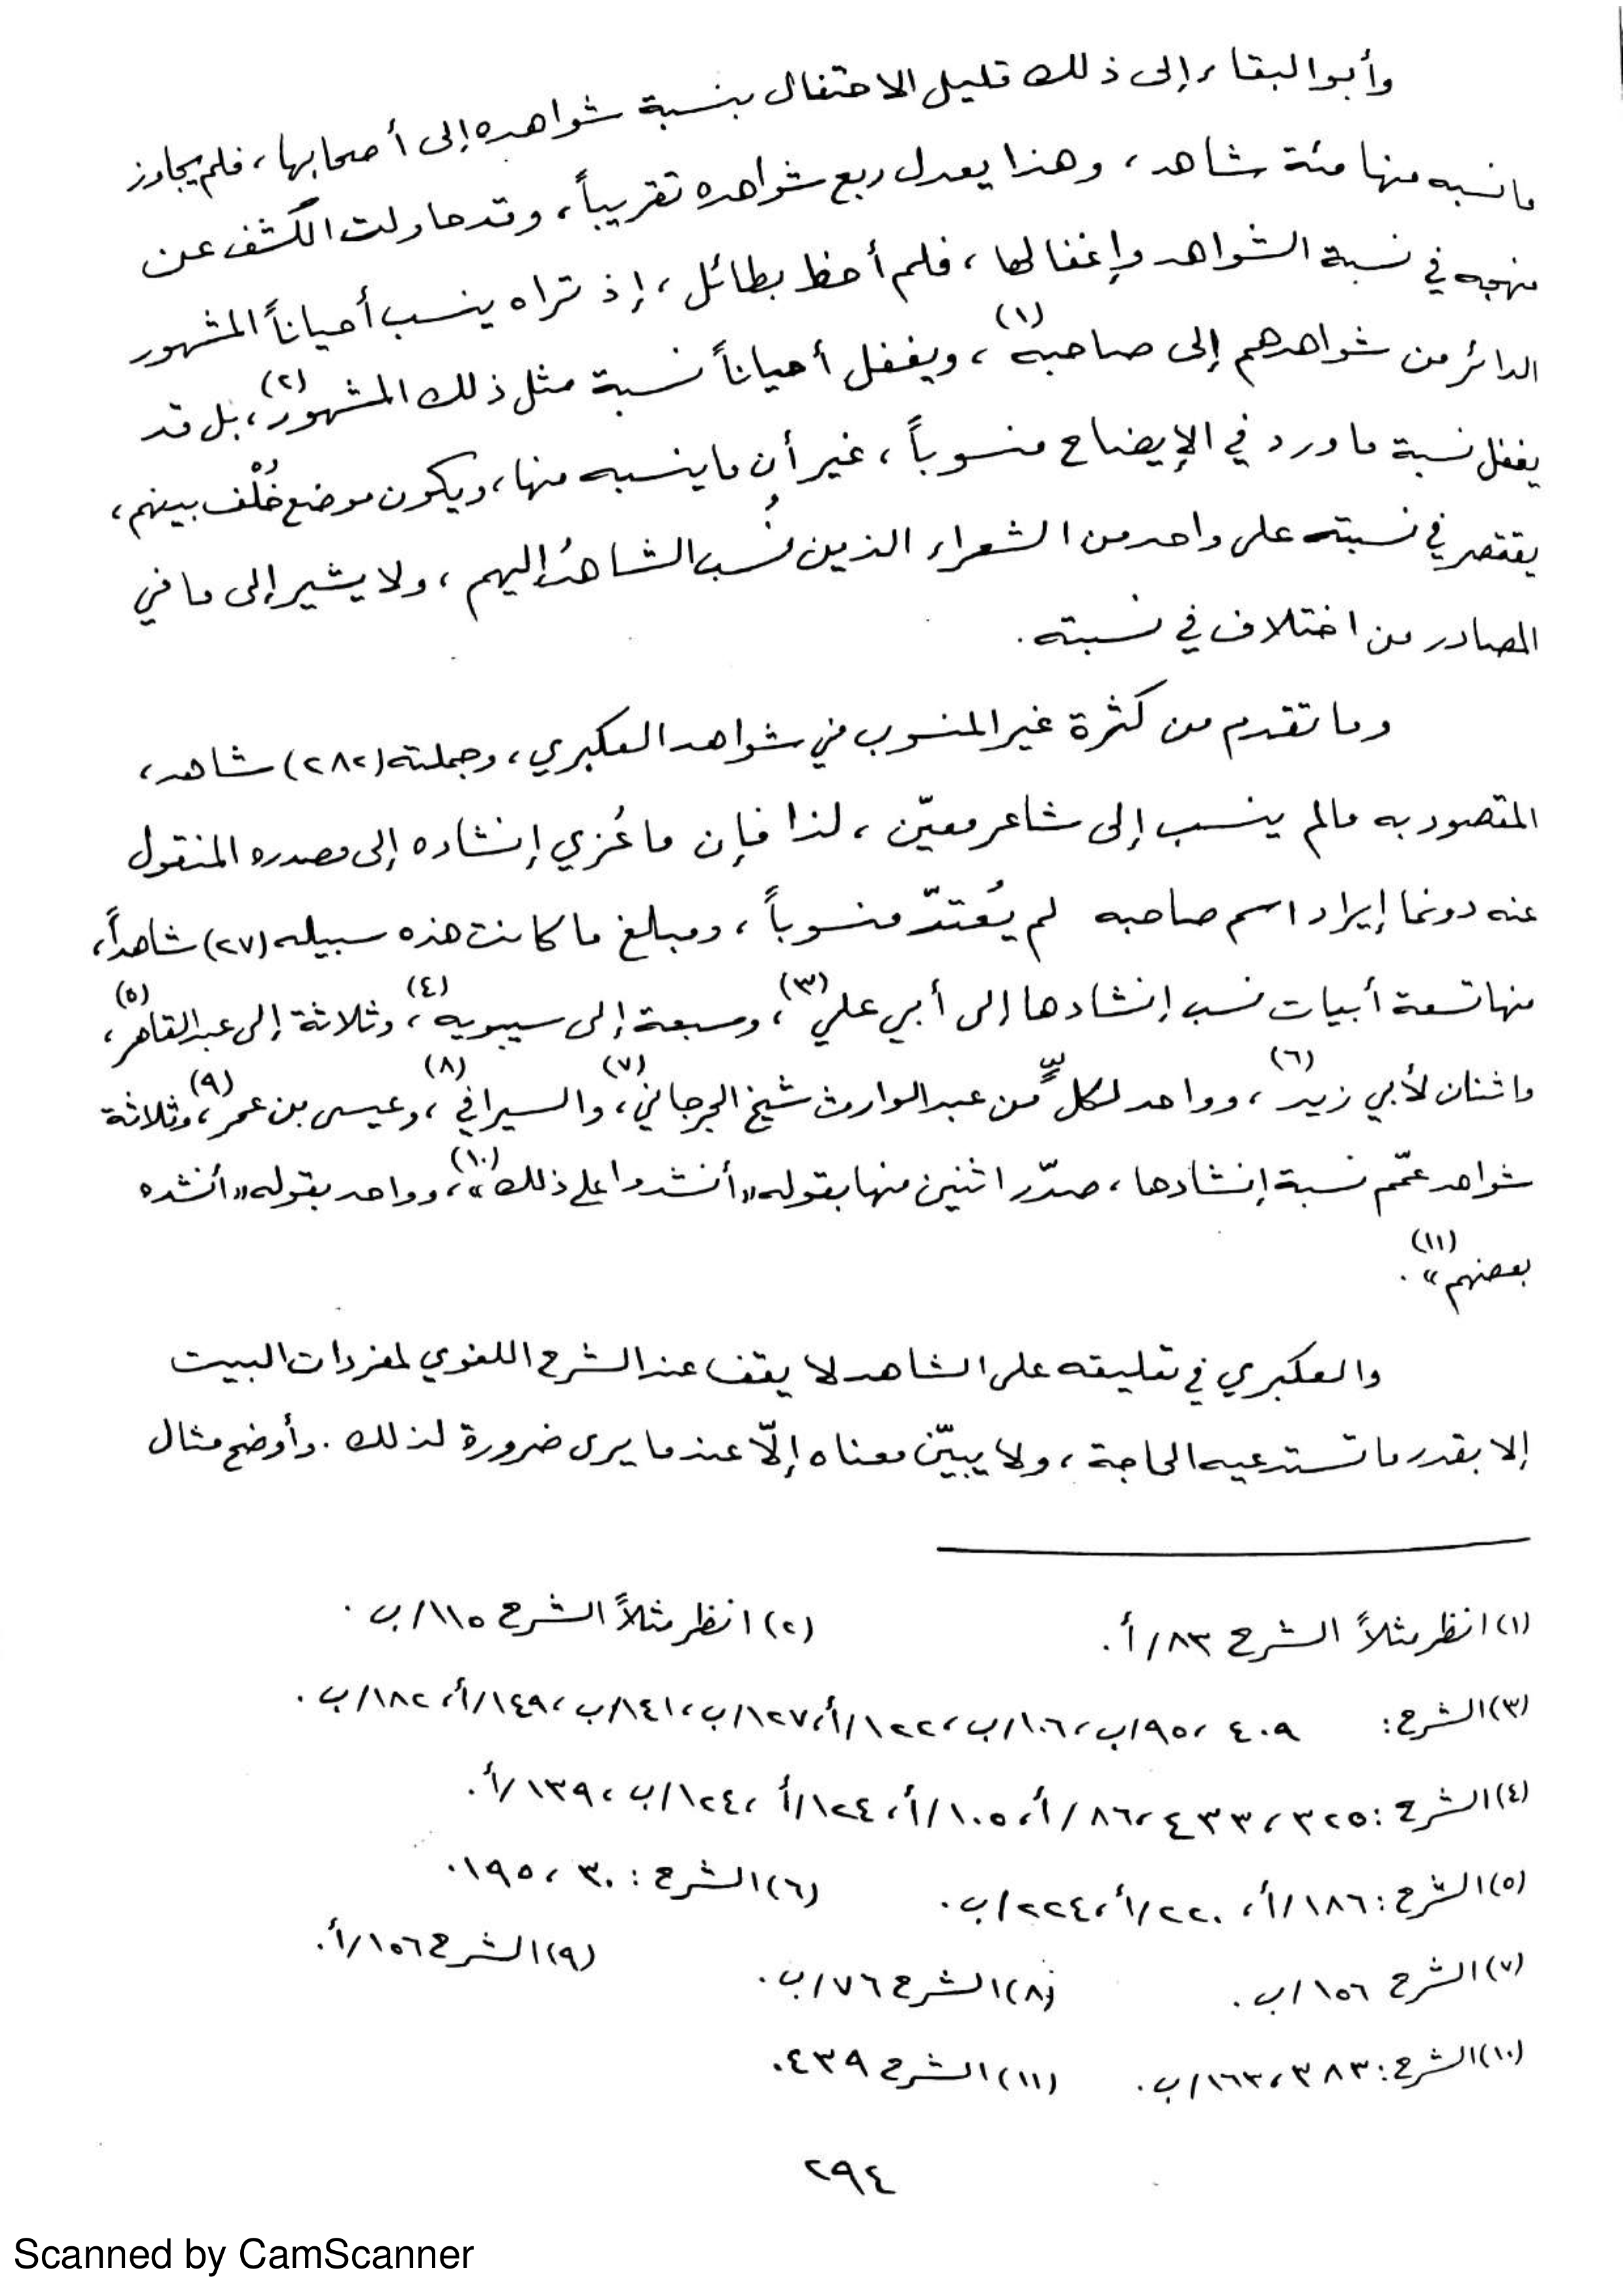 وأبو البقاء إلى ذلك قليل الاحتفال بنسبة شواهده إلى أصحابها، فلم يجاوز
ما نسبه منها مئة شاهد، وهذا يعدل ربع شواهده تقريباً، وقد حاولت الكشف عن
منهجه في نسبة الشواهد وإغفالها، فلم أحظ بطائل، إذ تراه ينسب أحياناً المشهور
الدائر من شواهدهم إلى صاحبه(١)، ويغفل أحياناً نسبة مثل ذلك المشهور(٢)، بل قد
يغفل نسبة ما ورد في الإيضاح منسوباً، غير أن ما ينسبه منها، ويكون موضع خُلْف بينهم،
يقتصر في نسبته على واحد من الشعراء الذين نُسب الشاهدُ إليهم، ولا يشير إلى ما في
المصادر من اختلاف في نسبته.
وما تقدم من كثرة غير المنسوب في شواهد العكبري، وجملته (٢٨٢) شاهد،
المقصود به مالم ينسب إلى شاعر معيّن، لذا فإن ما عُزي إنشاده إلى مصدره المنقول
عنه دونما إيراد اسم صاحبه لم يُعتدّ منسوباً، ومبلغ ما كانت هذه سبيله (٢٧) شاهداً،
منها تسعة أبيات نسب إنشادها إلى أبي علي(٣)، وسبعة إلى سيبويه(٤)، وثلاثة إلى عبد القاهر(٥)،
واثنان لأبي زيد(٦)، وواحد لكلٍّ من عبد الوارث شيخ الجرجاني(٧)، والسيرافي(٨)، وعيسى بن عمر(٩)، وثلاثة
شواهد عمّم نسبة إنشادها، صدّر اثنين منها بقوله «أنشدوا على ذلك»(١٠)، وواحد بقوله «أنشده
بعضهم»(١١).
والعكبري في تعليقه على الشاهد لا يقف عند الشرح اللغوي لمفردات البيت
إلا بقدر ما تستدعيه الحاجة، ولا يبيّن معناه إلّا عندما يرى ضرورة لذلك. وأوضح مثال
(١) انظر مثلاً الشرح ٨٣/أ. (٢) انظر مثلاً الشرح ١١٥/ب.
(٣) الشرح: ٤٠٩، ٩٥/ب، ١٠٦/ب، ١٢٢/أ، ١٢٧/ب، ١٤١/ب، ١٤٩/أ، ١٨٢/ب.
(٤) الشرح: ٣٢٥، ٤٣٣، ٨٦/أ، ١٠٥/أ، ١٢٤/أ، ١٢٤/ب، ١٣٩/أ.
(٥) الشرح: ١٨٦/أ، ٢٢٠/أ، ٢٢٤/ب. (٦) الشرح: ٣٠، ١٩٥.
(٧) الشرح ١٥٦/ب. (٨) الشرح ٧٦/ب. (٩) الشرح ١٥٦/أ.
(١٠) الشرح: ٣٨٣، ١٦٣/ب. (١١) الشرح ٤٣٩.
٢٩٤
Scanned by CamScanner